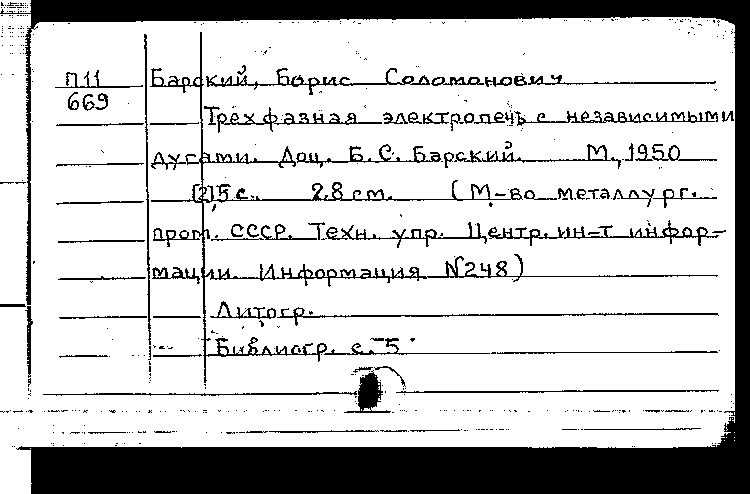 П11 Барский, Борис Соломонович
669
Трехфазная электропечь с независимыми
дугами. Доц. Б.С. Барский. М., 1950
[2], 5 с. 28 см. (М-во металлург.
пром. СССР. Техн. упр. Центр. ин-т инфор-
мации. Информация N248)
Литогр.
Библиогр. с. 5